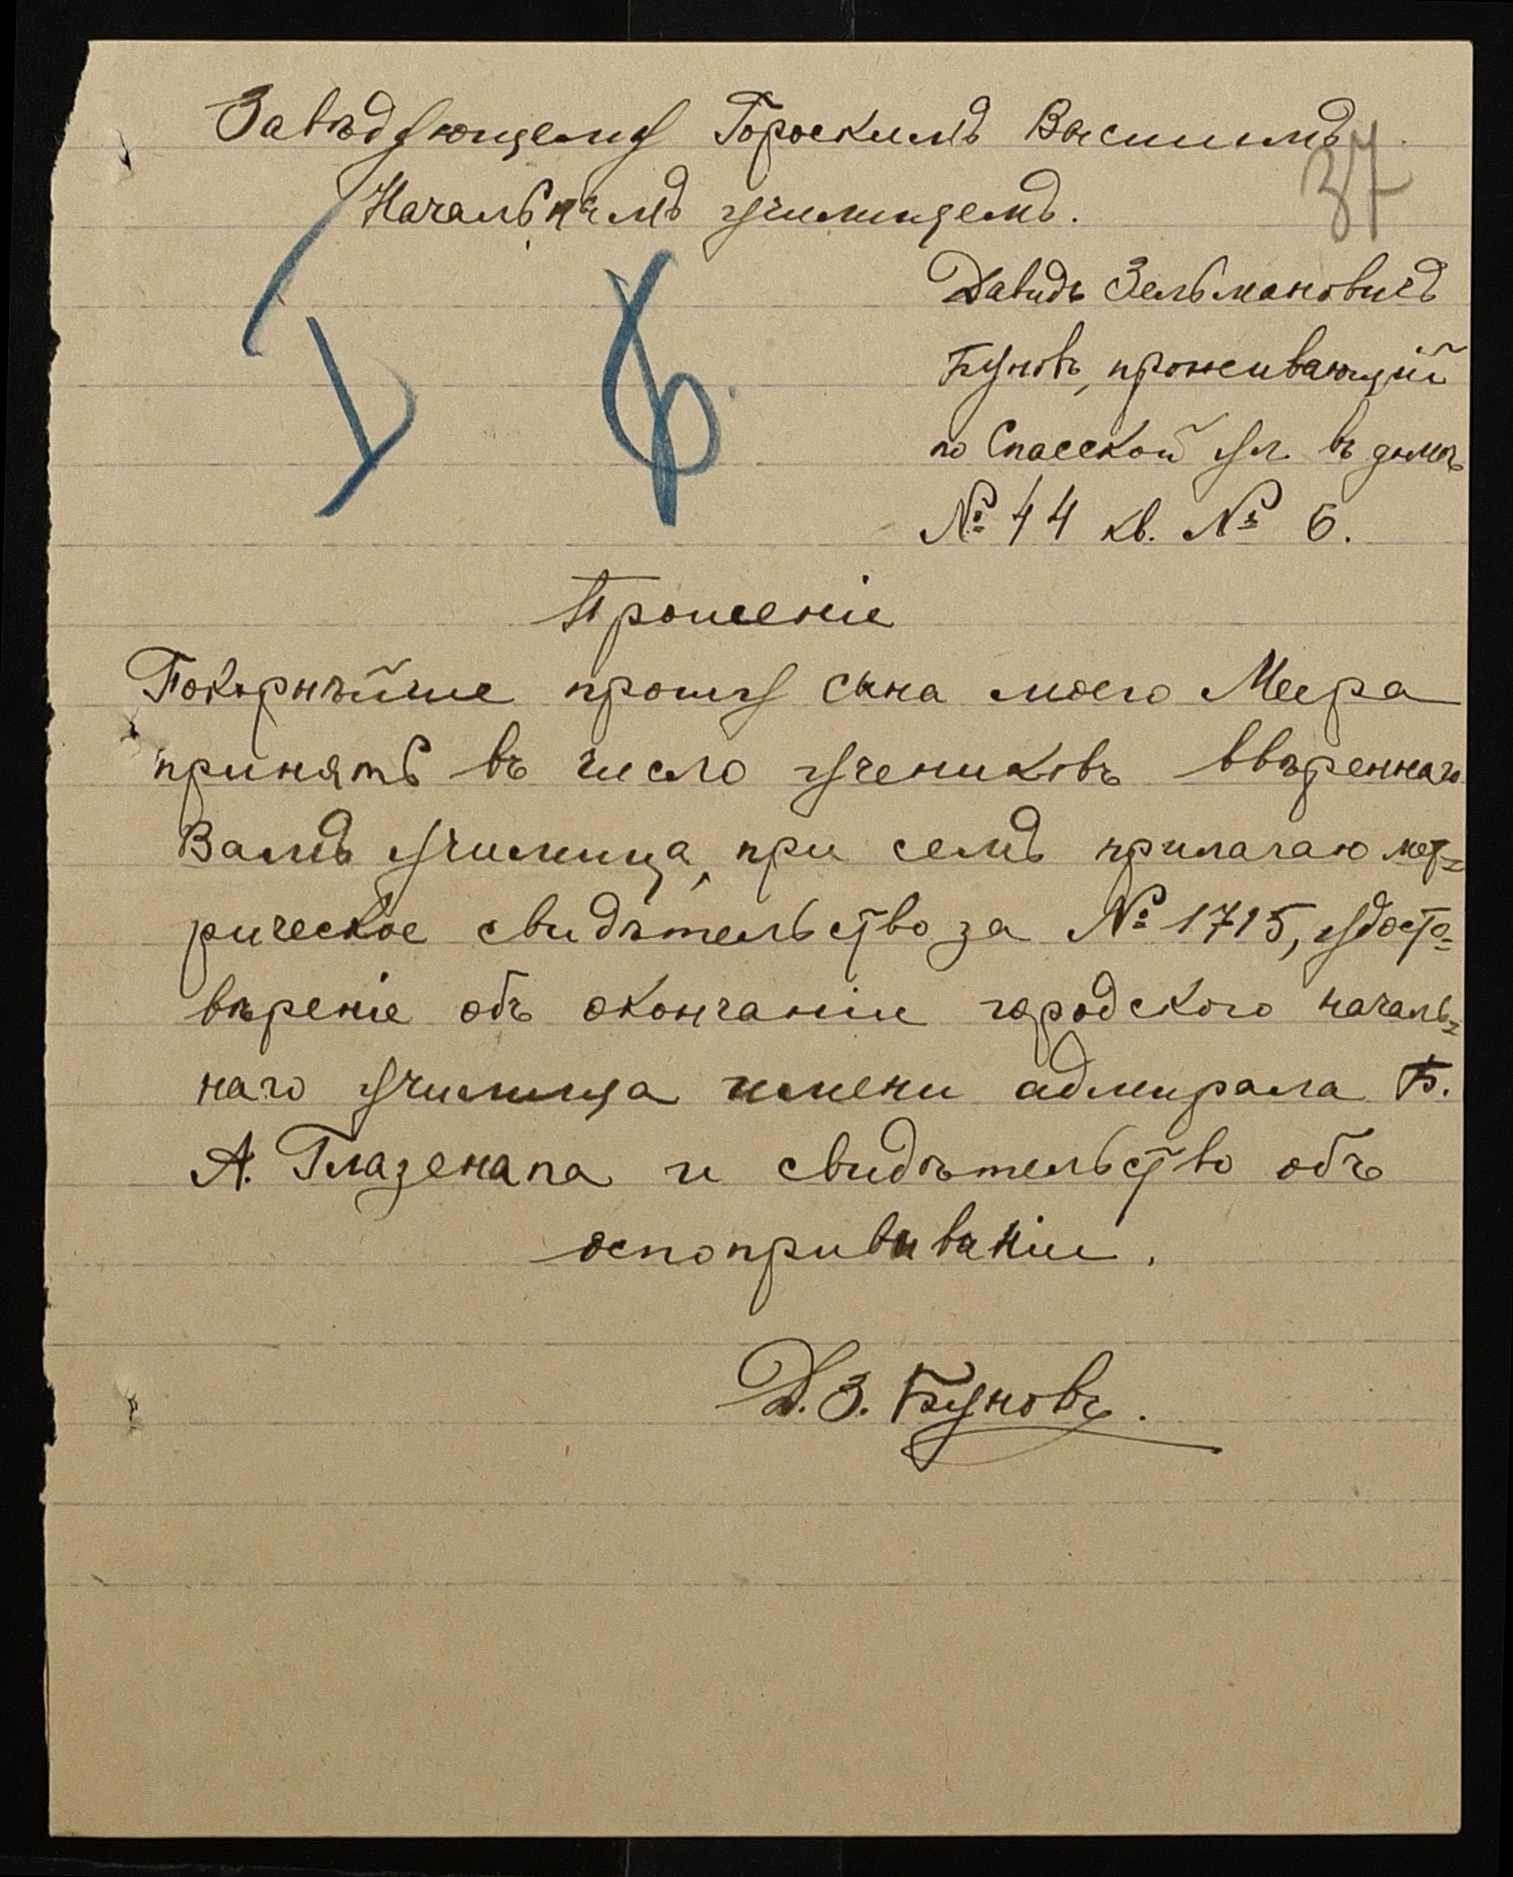 Завѣдующему Гороскимъ Высшимъ
37
Начальнымъ училищемъ.
Давидъ Зельмановичъ
Буновъ, проживающій
по Спасской ул. въ домѣ
№ 44 кв. № 6.
Прошеніе
Покорнѣйше прошу сына моего Меера
принять въ число учениковъ ввѣреннаго
Вамъ училища, при семъ прилагаю мет=
рическое свидѣтельство за № 1715, удосто=
вѣреніе объ окончаніи городского началь=
наго училища имени адмирала Б.
А. Глазенапа и свидѣтельство объ
оспопрививаніи.
Д. З. Буновъ.